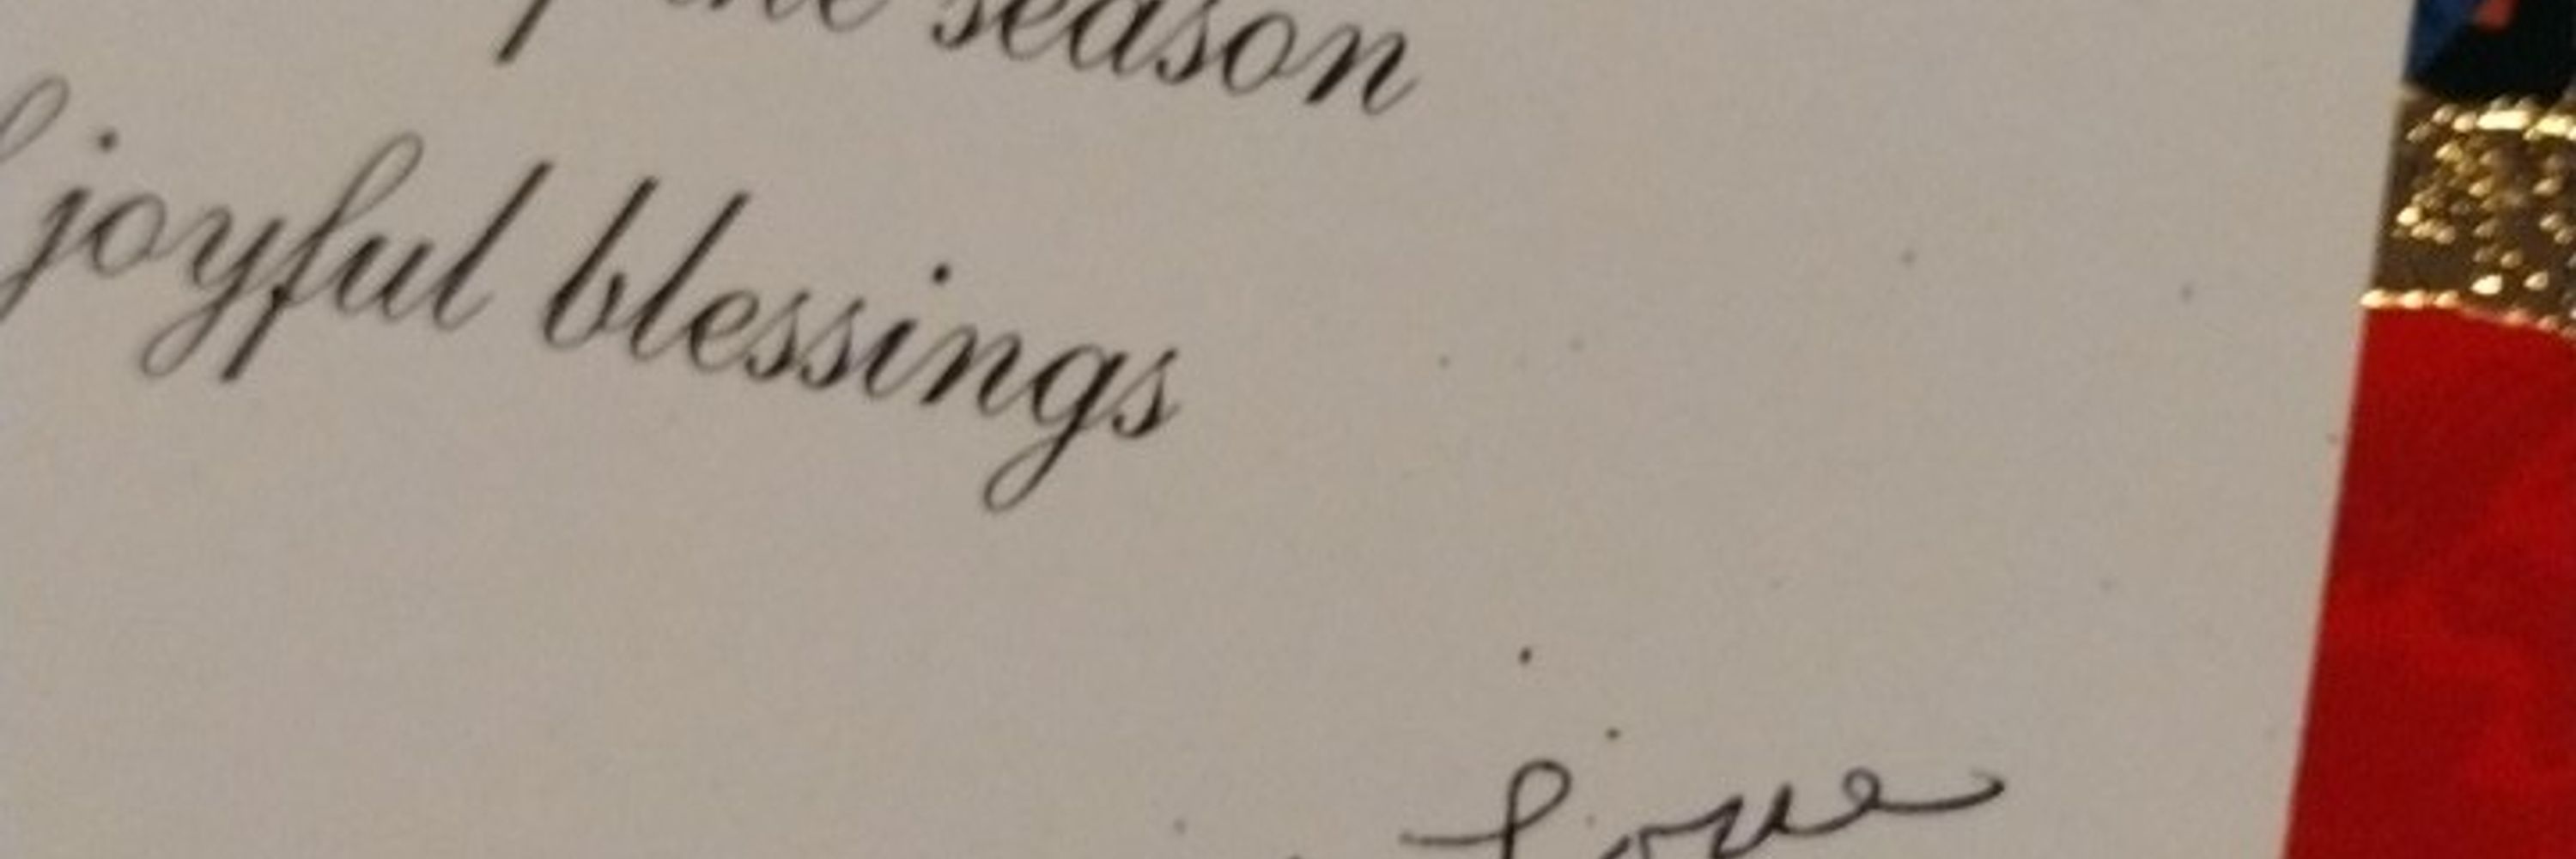 the season
joyful blessings
Love